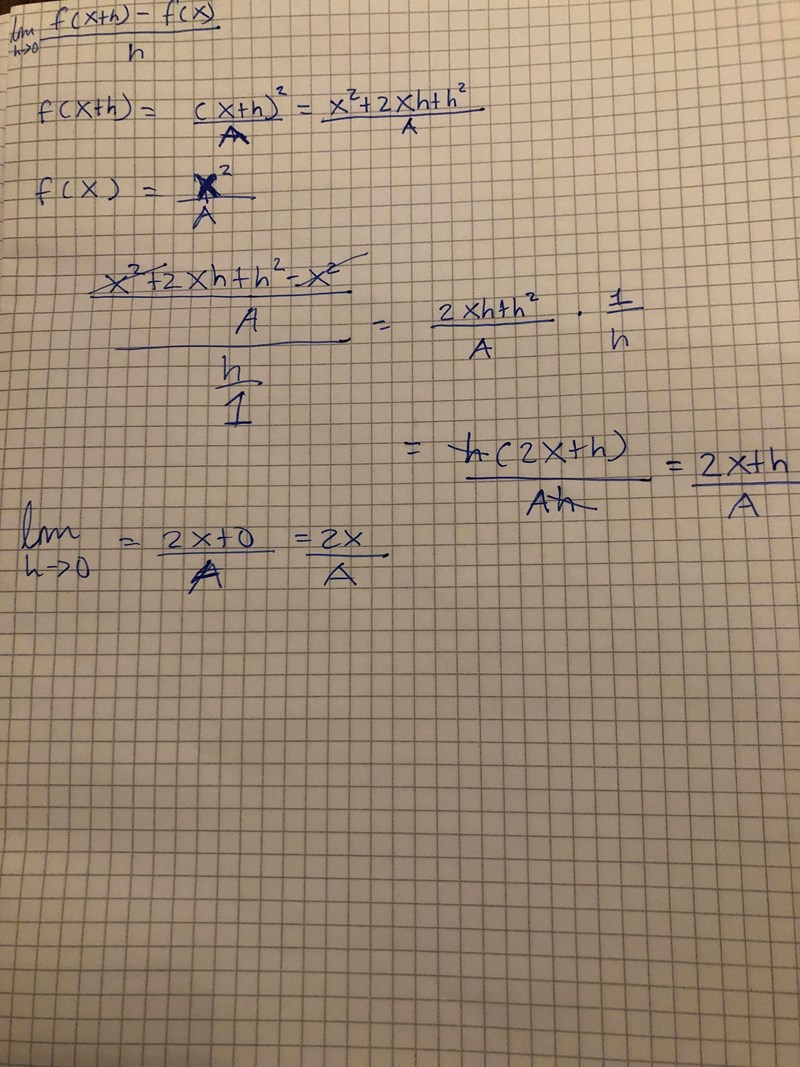 lim h→0 f(x+h) - f(x) / h
f(x+h) = (x+h)² / A = x²+2xh+h² / A
f(x) = x² / A
x²+2xh+h²-x² / A / h / 1 = 2xh+h² / A · 1 / h
= h(2x+h) / Ah = 2x+h / A
lim h→0 = 2x+0 / A = 2x / A